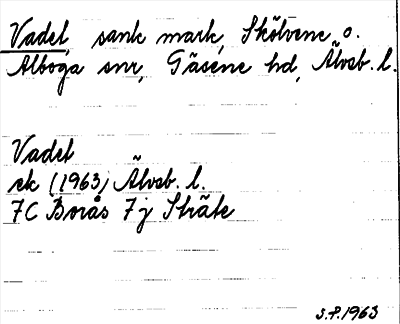 Vadel, sank mark, Skölvene o.
Alboga snr, Gäsene hd, Älvsb. l.
Vadel
ek (1963) Älvsb. l.
7C Borås 7j Stråle
S.P. 1963